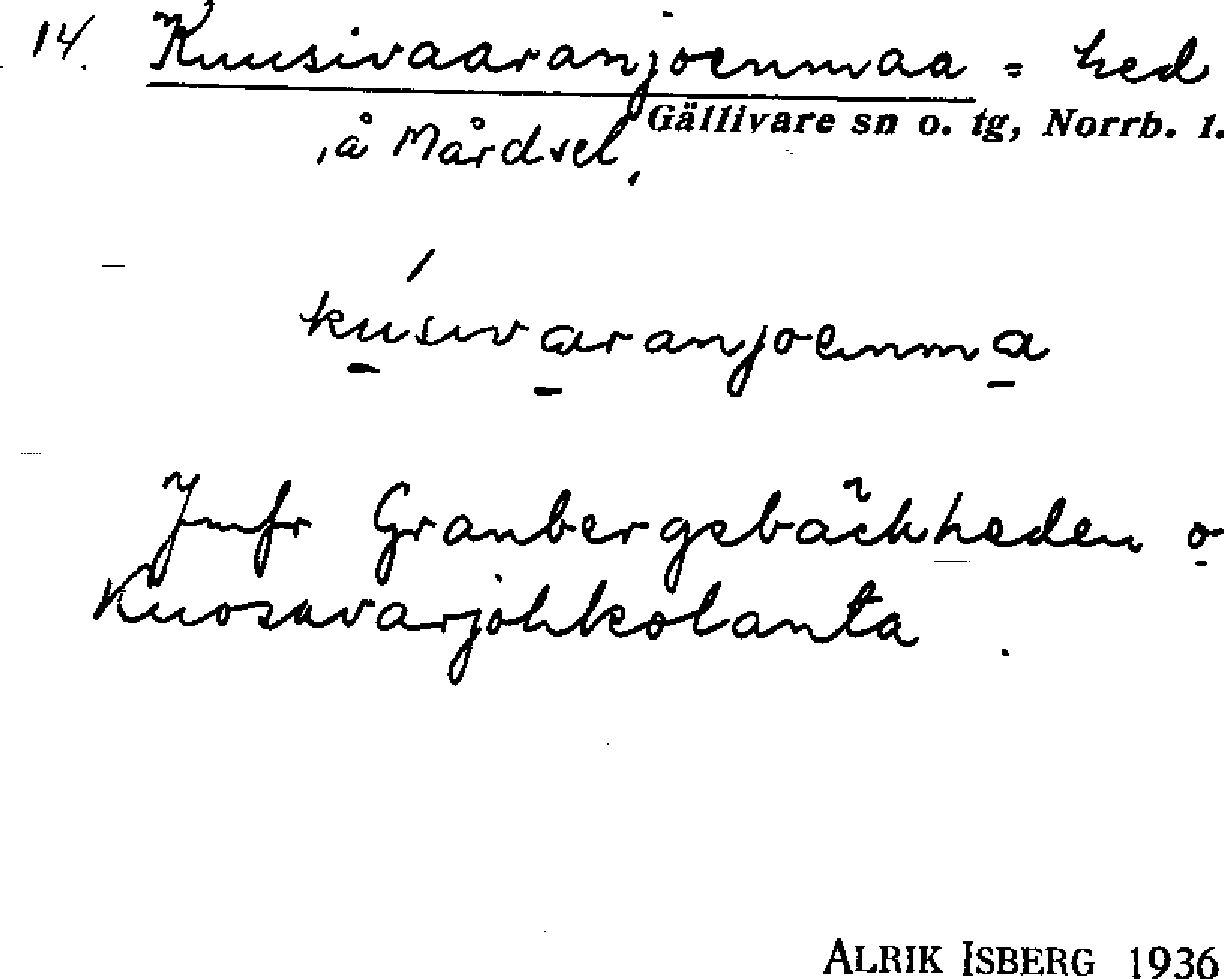 14. Kuusivaaranjoenmaa = hed
Gällivare sn o. tg, Norrb. l.
å Mårdsel,
kusivaranjoenma
Jmfr Granbergsbäckheden o
Kuosavarjohkolanta.
ALRIK ISBERG 1936